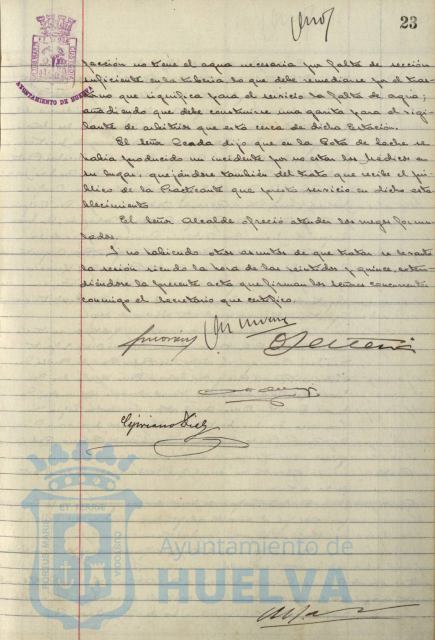 23
AYUNTAMIENTO DE HUELVA
facción no tiene el agua necesaria por falta de sección
suficiente en la tubería, lo que debe remediarse por el tras-
torno que significa para el servicio la falta de agua;
añadiendo que debe construirse una garita para el vigi-
lante de arbitrios que está cerca de dicha Estación.
El Señor Seada dijo que en la Gota de Leche se
había producido un incidente por no estar los Médicos en
su lugar, quejándose también del trato que recibe el pú-
blico de la Practicante que presta servicio en dicho esta-
blecimiento.
El Señor Alcalde ofreció atender los ruegos formu-
lados.
Y no habiendo otros asuntos de que tratar se levantó
la sesión siendo la hora de las veintidos y quince, exten-
diéndose la presente acta que firman los señores concurrentes
conmigo el Secretario que certifico.
Cipriano Diez
PORTUS MARIS
ET TERRE
CUSTODIA
Ayuntamiento de
HUELVA